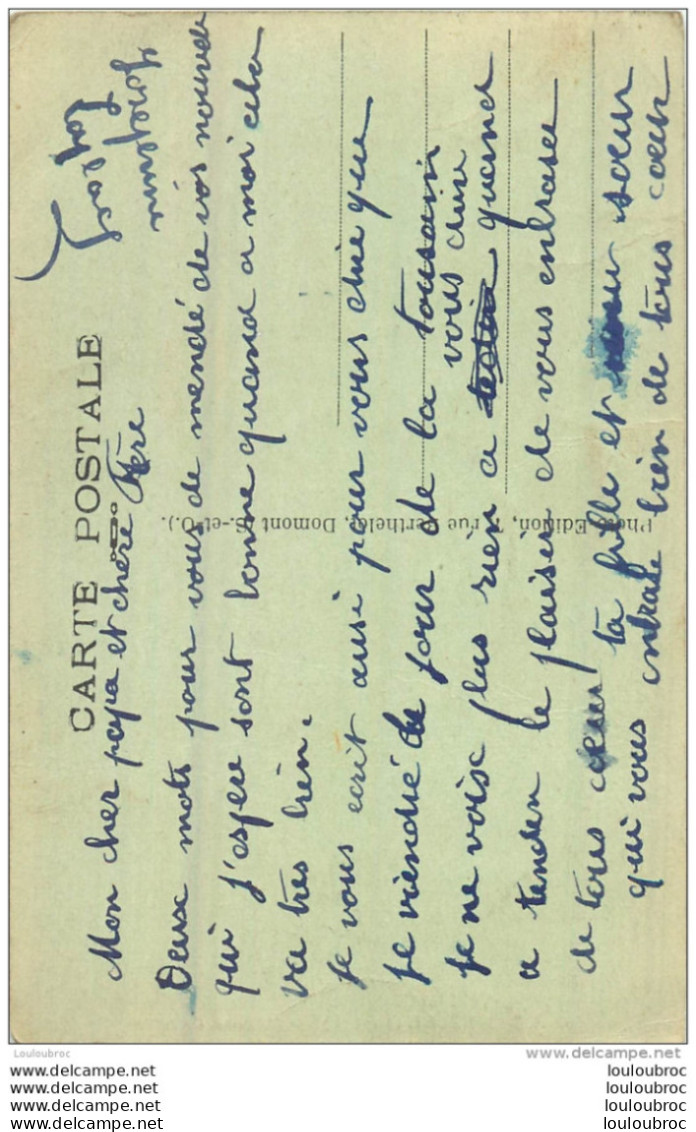 CARTE POSTALE
Mon cher papa et chère frère
Deux mots pour vous de mendé de vos nouvele
qui j'espere sont bonne quand a moi cela
va très bien.
Je vous ecrit ausi pour vous dire que
je viendré le jour de la tousain
je ne voix plus rien a vous dire quand
a tenden le plaisir de vous enbraser
de tous cœur ta fille et sœur
qui vous enbrase bien de tous cœur
Photo-Edition, rue Berthelot, Domont (S.-et-O.).
Louloubroc
www.delcampe.net
www.delcampe.net
www.delcampe.net
www.delcampe.net
www.delcampe.net
louloubroc
louloubroc
louloubroc